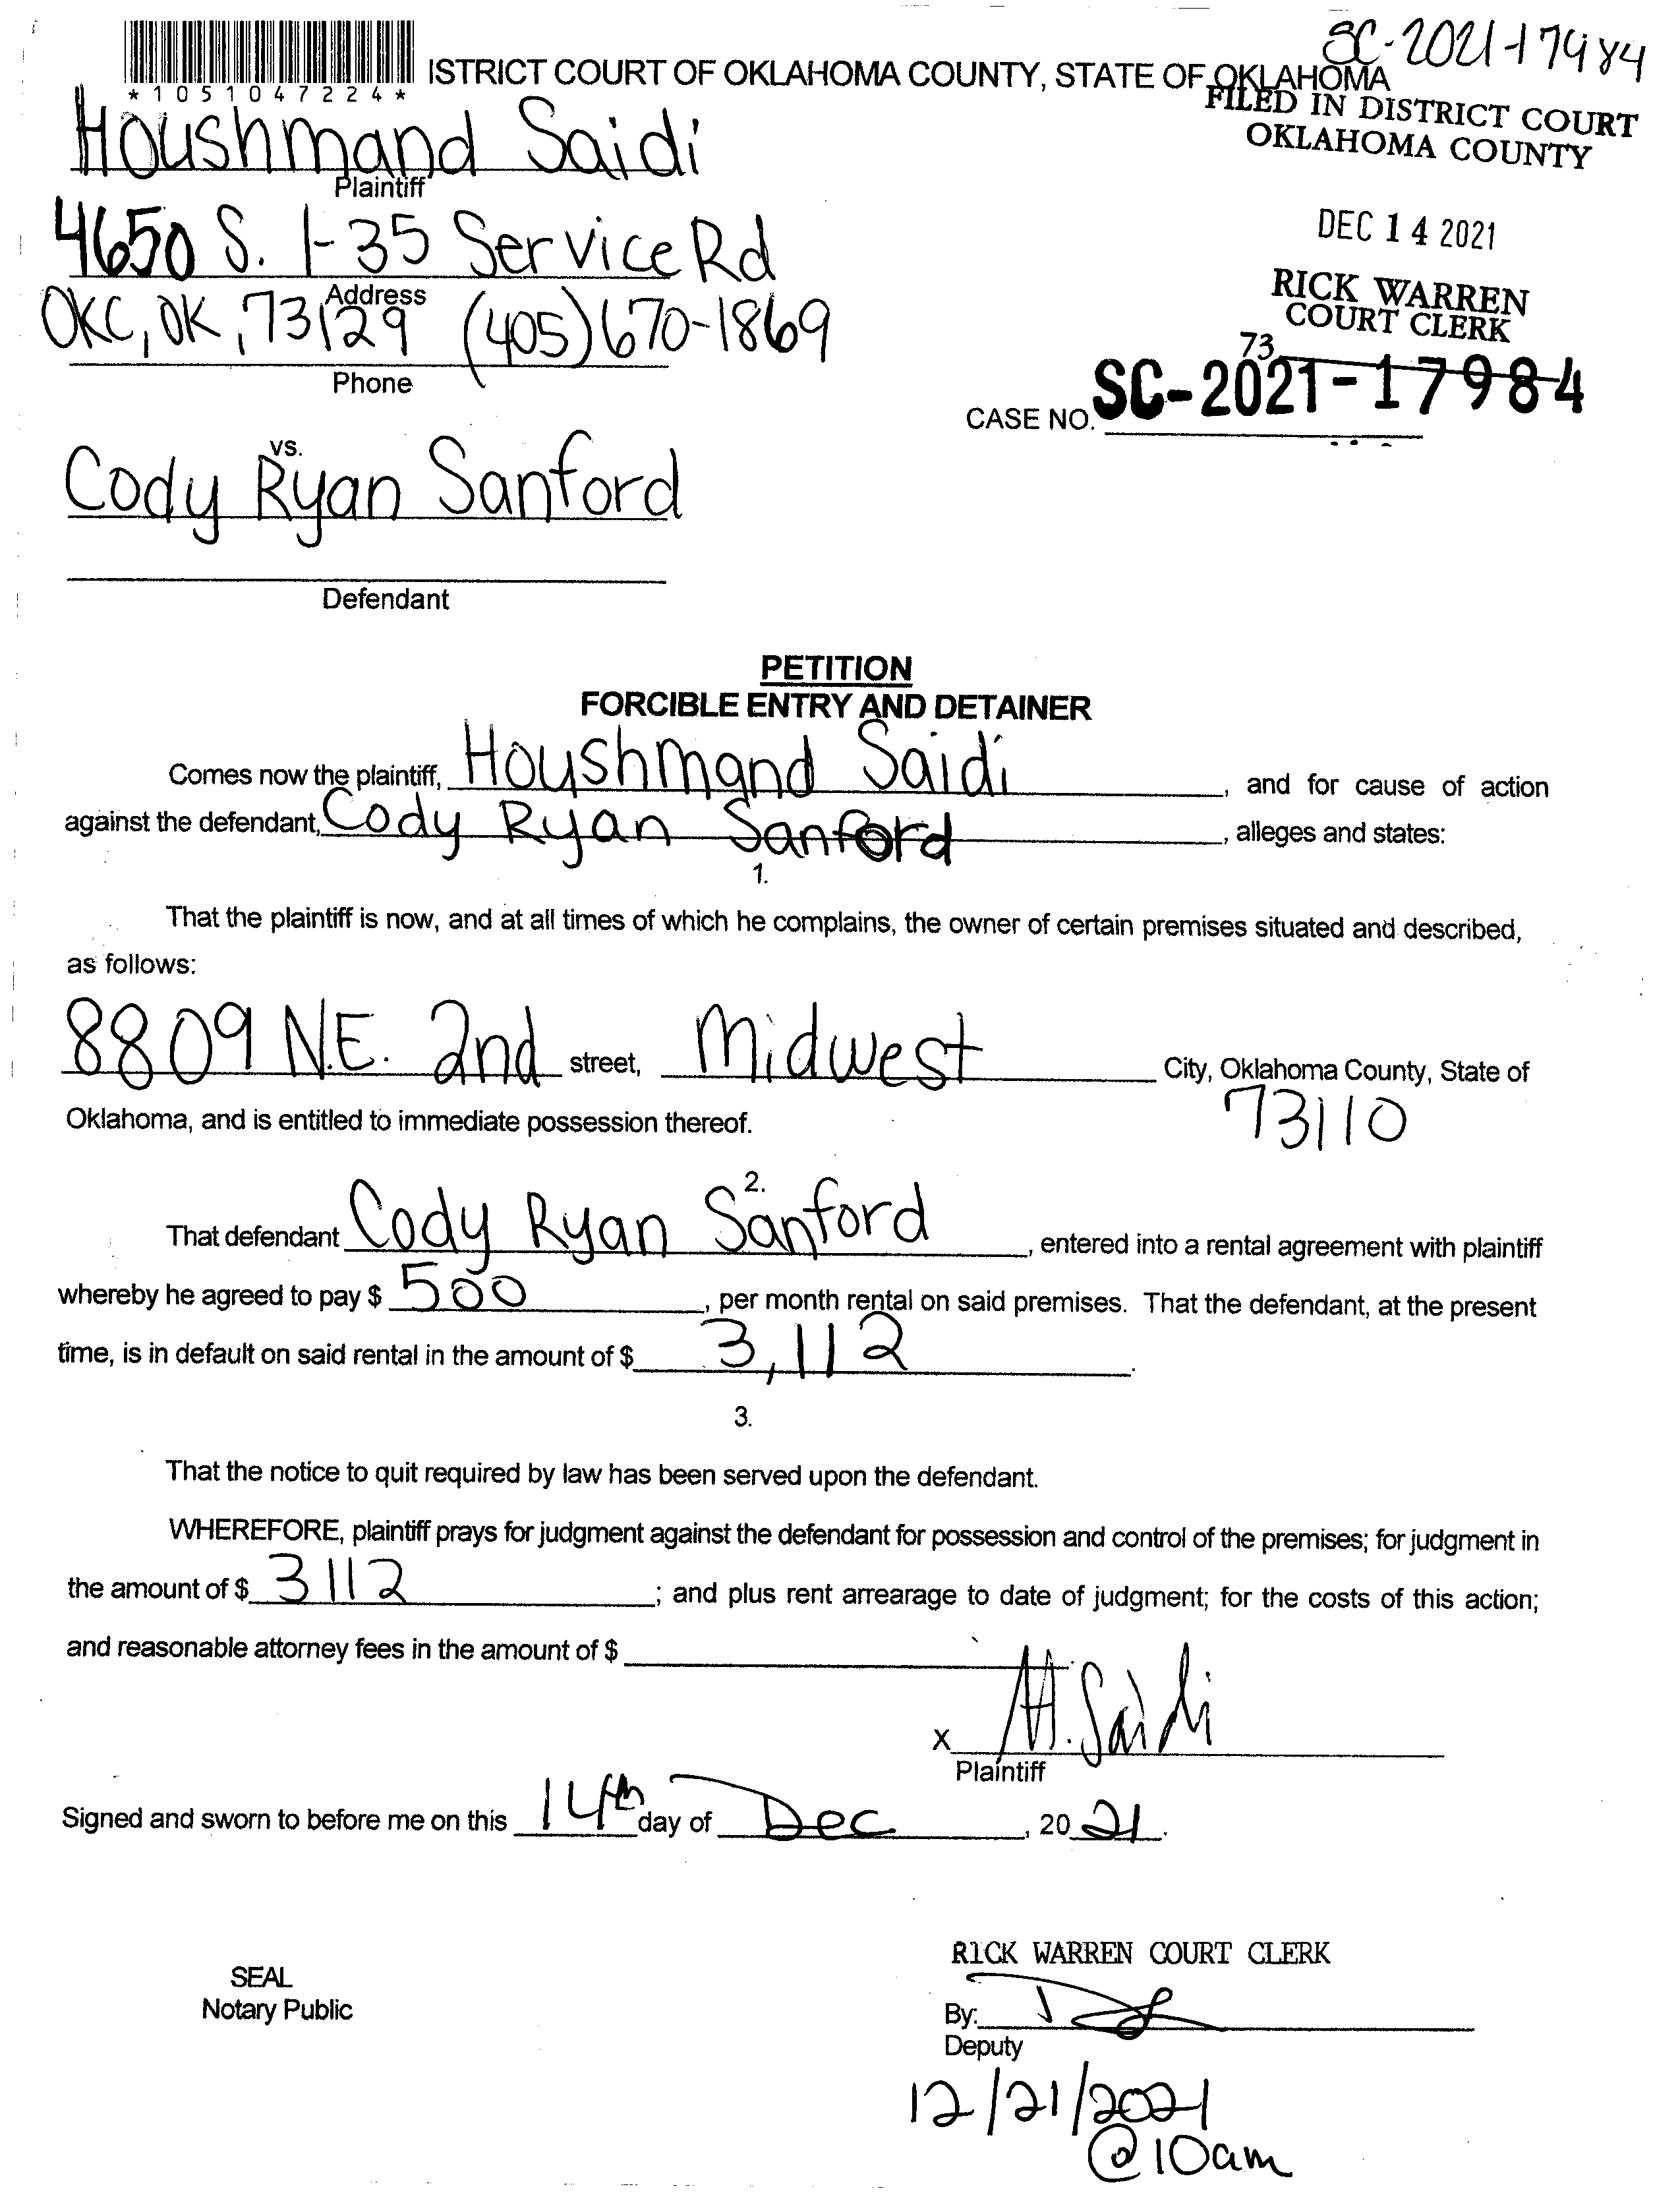 SC-2021-17984
ISTRICT COURT OF OKLAHOMA COUNTY, STATE OF OKLAHOMA
*1051047224*
FILED IN DISTRICT COURT
OKLAHOMA COUNTY
Houshmand Saidi
Plaintiff
DEC 14 2021
4650 S. I-35 Service Rd
Address
RICK WARREN
COURT CLERK
OKC, OK, 73129 (405)670-1869
Phone
73
CASE NO. SC-2021-17984
vs.
Cody Ryan Sanford
Defendant
PETITION
FORCIBLE ENTRY AND DETAINER
Comes now the plaintiff, Houshmand Saidi, and for cause of action
against the defendant, Cody Ryan Sanford, alleges and states:
1.
That the plaintiff is now, and at all times of which he complains, the owner of certain premises situated and described,
as follows:
8809 N.E. 2nd street, Midwest City, Oklahoma County, State of
Oklahoma, and is entitled to immediate possession thereof. 73110
2.
That defendant Cody Ryan Sanford, entered into a rental agreement with plaintiff
whereby he agreed to pay $ 500, per month rental on said premises. That the defendant, at the present
time, is in default on said rental in the amount of $ 3,112.
3.
That the notice to quit required by law has been served upon the defendant.
WHEREFORE, plaintiff prays for judgment against the defendant for possession and control of the premises; for judgment in
the amount of $ 3112; and plus rent arrearage to date of judgment; for the costs of this action;
and reasonable attorney fees in the amount of $
X H. Saidi
Plaintiff
Signed and sworn to before me on this 14th day of Dec, 20 21.
RICK WARREN COURT CLERK
SEAL
Notary Public
By:
Deputy
12/21/2021
@10am